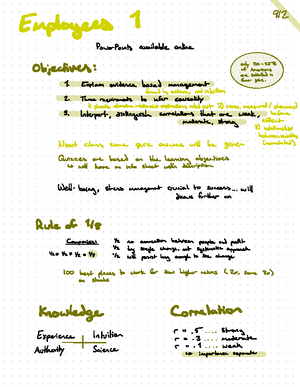 912
Employees 1
PowerPoints available online
only 20-25%
of Americans
are satisfied in
their jobs.
Objectives:
1. Explain evidence based management
based in, not intuition
2. Three requirements to infer causality
2) cause, measured/observed
before
effect
3) relationships
between
3. Interpret, distinguish correlations that are weak,
moderate, strong
Next class some quiz answers will be given
Quizzes are based on the learning objectives
will have an info sheet with description
Well being, stress management crucial to success... will
discuss further on
Rule of 1/8
Companies:
1/2 × 1/2 × 1/2 = 1/8
1/2 no connection between people and profit
1/2 try single change, not systematic approach
1/2 will persist long enough to see change
100 best places to work for saw higher returns (2x, some 3x)
on stocks
Knowledge
Experience
Intuition
Authority
Science
Correlation
r = .5 ..... strong
r = .3 .... moderate
r = .1 .... weak
importance separate